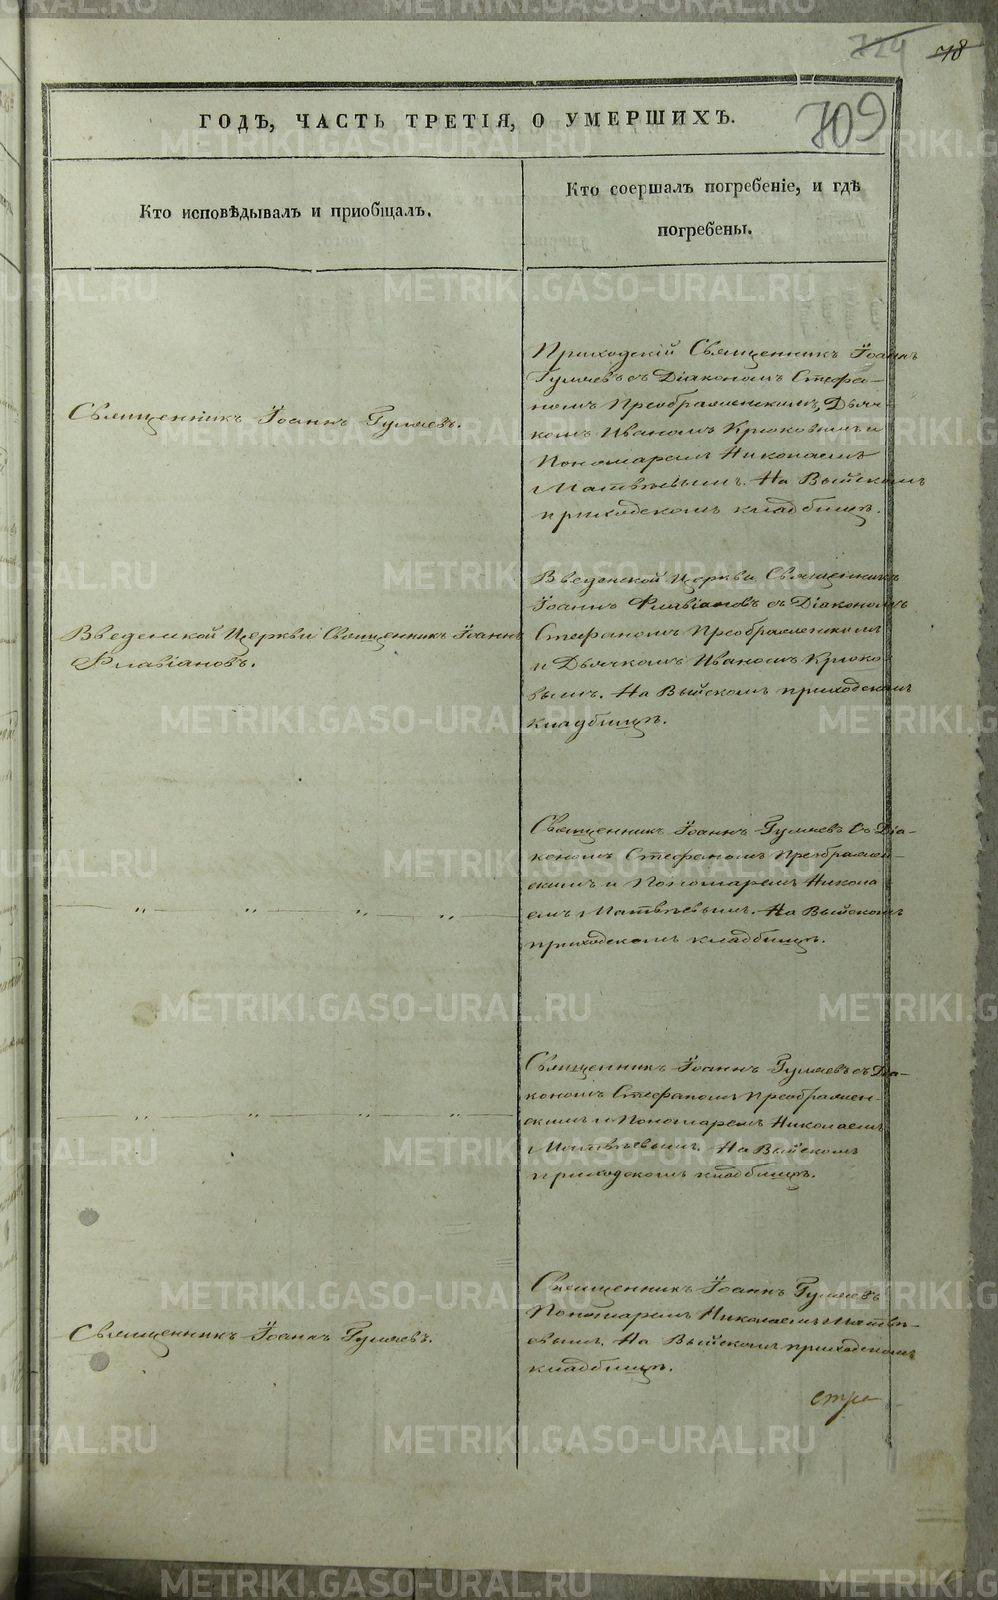 724 78
709
ГОДЪ, ЧАСТЬ ТРЕТІЯ, О УМЕРШИХЪ.
Кто исповѣдывалъ и пріобщалъ.
Кто соершалъ погребеніе, и гдѣ
погребены.
Приходскій Священникъ Іоаннъ
Гуляевъ съ Діакономъ Стефа-
номъ Преображенскимъ, Дьяч-
комъ Иваномъ Крюковымъ и
Пономаремъ Николаемъ
Матвѣевымъ. На Выйскомъ
приходскомъ кладбищѣ.
Священникъ Іоаннъ Гуляевъ.
Введенской Церкви Священникъ
Іоаннъ Флавіановъ съ Діакономъ
Стефаномъ Преображенскимъ
и Дьячкомъ Иваномъ Крюко-
вымъ. На Выйскомъ приходскомъ
кладбищѣ.
Введенской Церкви Священникъ Іоаннъ
Флавіановъ.
Священникъ Іоаннъ Гуляевъ съ Діа-
кономъ Стефаномъ Преображен-
скимъ и Пономаремъ Никола
емъ Матвѣевымъ. На Выйскомъ
приходскомъ кладбищѣ.
— „ — „ — „ — „ —
Священникъ Іоаннъ Гуляевъ съ Діа-
кономъ Стефаномъ Преображен-
скимъ и Пономаремъ Николаемъ
Матвѣевымъ. На Выйскомъ
приходскомъ кладбищѣ.
— „ — „ — „ — „ —
Священникъ Іоаннъ Гуляевъ
Пономаремъ Николаемъ Матвѣ-
евымъ. На Выйскомъ приходскомъ
кладбищѣ.
Священникъ Іоаннъ Гуляевъ.
METRIKI.GASO-URAL.RU